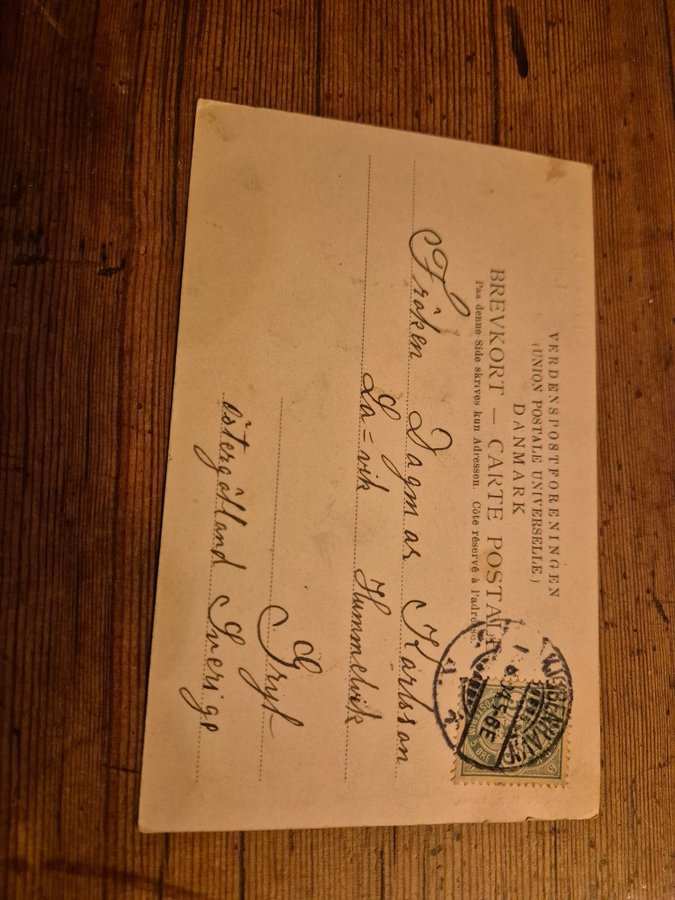 VERDENSPOSTFORENINGEN
(UNION POSTALE UNIVERSELLE.)
DANMARK
BREVKORT — CARTE POSTALE
Paa denne Side skrives kun Adressen. Côte réservé à l'adresse
KJØBENHAVN
5-6E
5 ØRE
Fröken Dagmar Karlsson
Hummelvik
Gryt
Östergötland Sverige